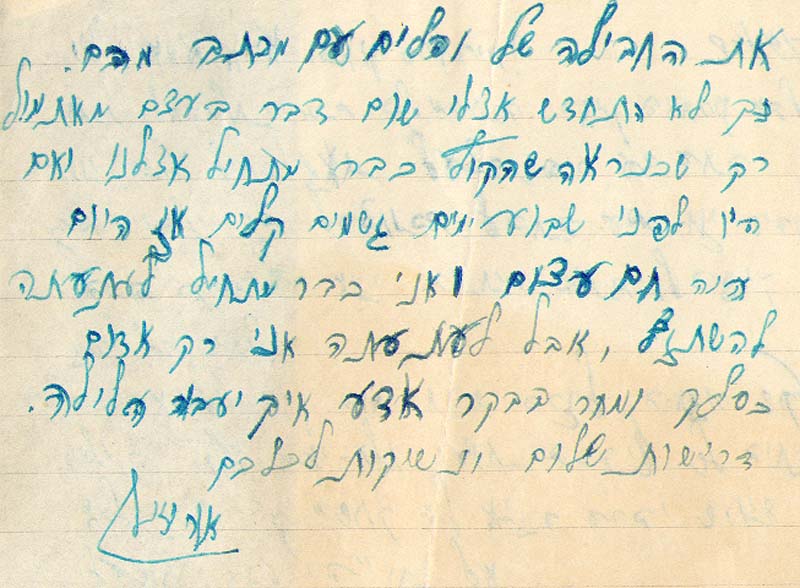 את החבילה של וחלים עם מכתב מרים.
כך לא התחדש אצלי שום דבר בעצם מאתמול
רק שכנראה שהקיץ כבר מתחיל אצלנו ואם
היו לפני שבועיימים גשמים קלים אז היום
היה חם עצום ואני כבר מתחיל לעת עתה
להשתזף, אבל לעת עתה אני רק אדום
כסלק ומחר בבקר אדע איך יעבור הלילה.
דרישות שלום ונשיקות לכלכם